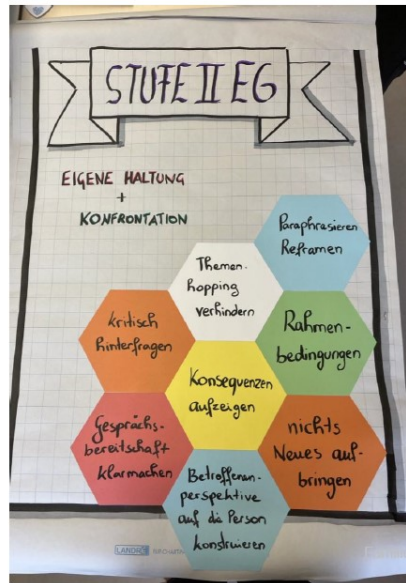 STUFE II EG
EIGENE HALTUNG
+
KONFRONTATION
Paraphrasieren
Reframen
Themen-
hopping
verhindern
kritisch
hinterfragen
Rahmen-
bedingungen
Konsequenzen
aufzeigen
Gesprächs-
bereitschaft
klarmachen
nichts
Neues auf-
bringen
Betroffenen-
perspektive
auf die Person
konstruieren